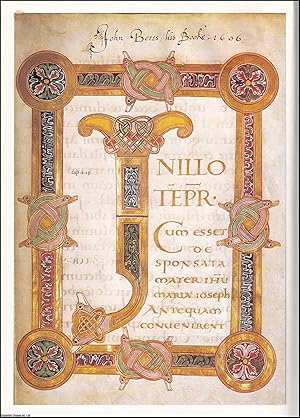 John Betts, his Booke. 1606
cap. 1. 18
IN ILLO
TEPR·
CUM ESSET
DE
SPONSATA
MATER IHU
MARIA IOSEPH
ANTEQUAM
CONUENIRENT